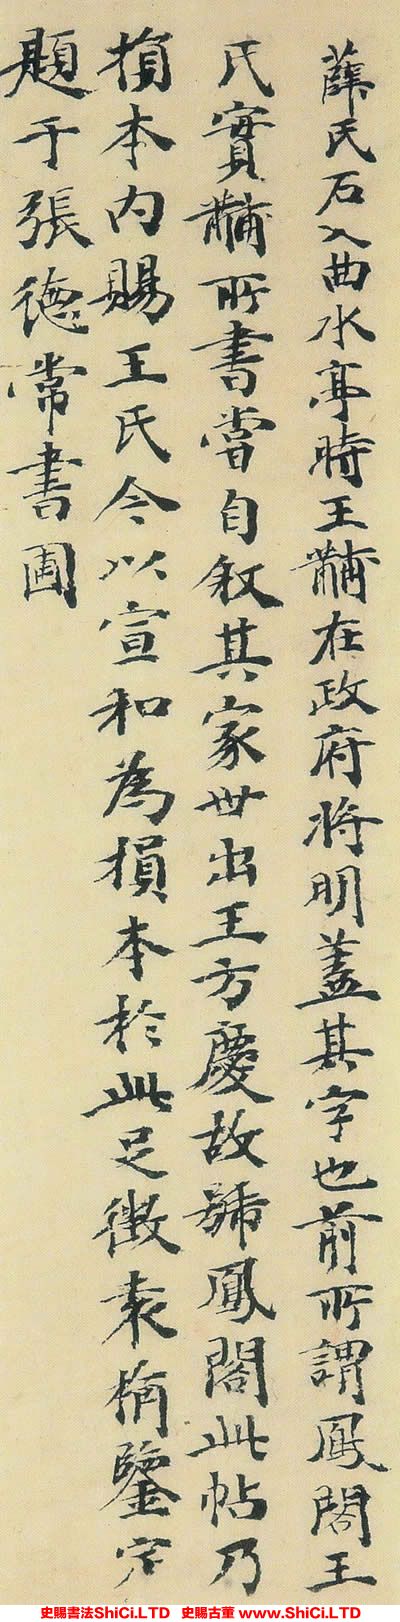 薛氏石入曲水亭時王黼在政府將明蓋其字也前所謂鳳閣王
氏實黼所書嘗自叙其家世出王方慶故號鳳閣此帖乃
損本内賜王氏今以宣和為損本於此足徵袁桷鑒定
題于張德常書圃
史賜書法ShiCi.LTD 史賜古董 www.ShiCi.LTD